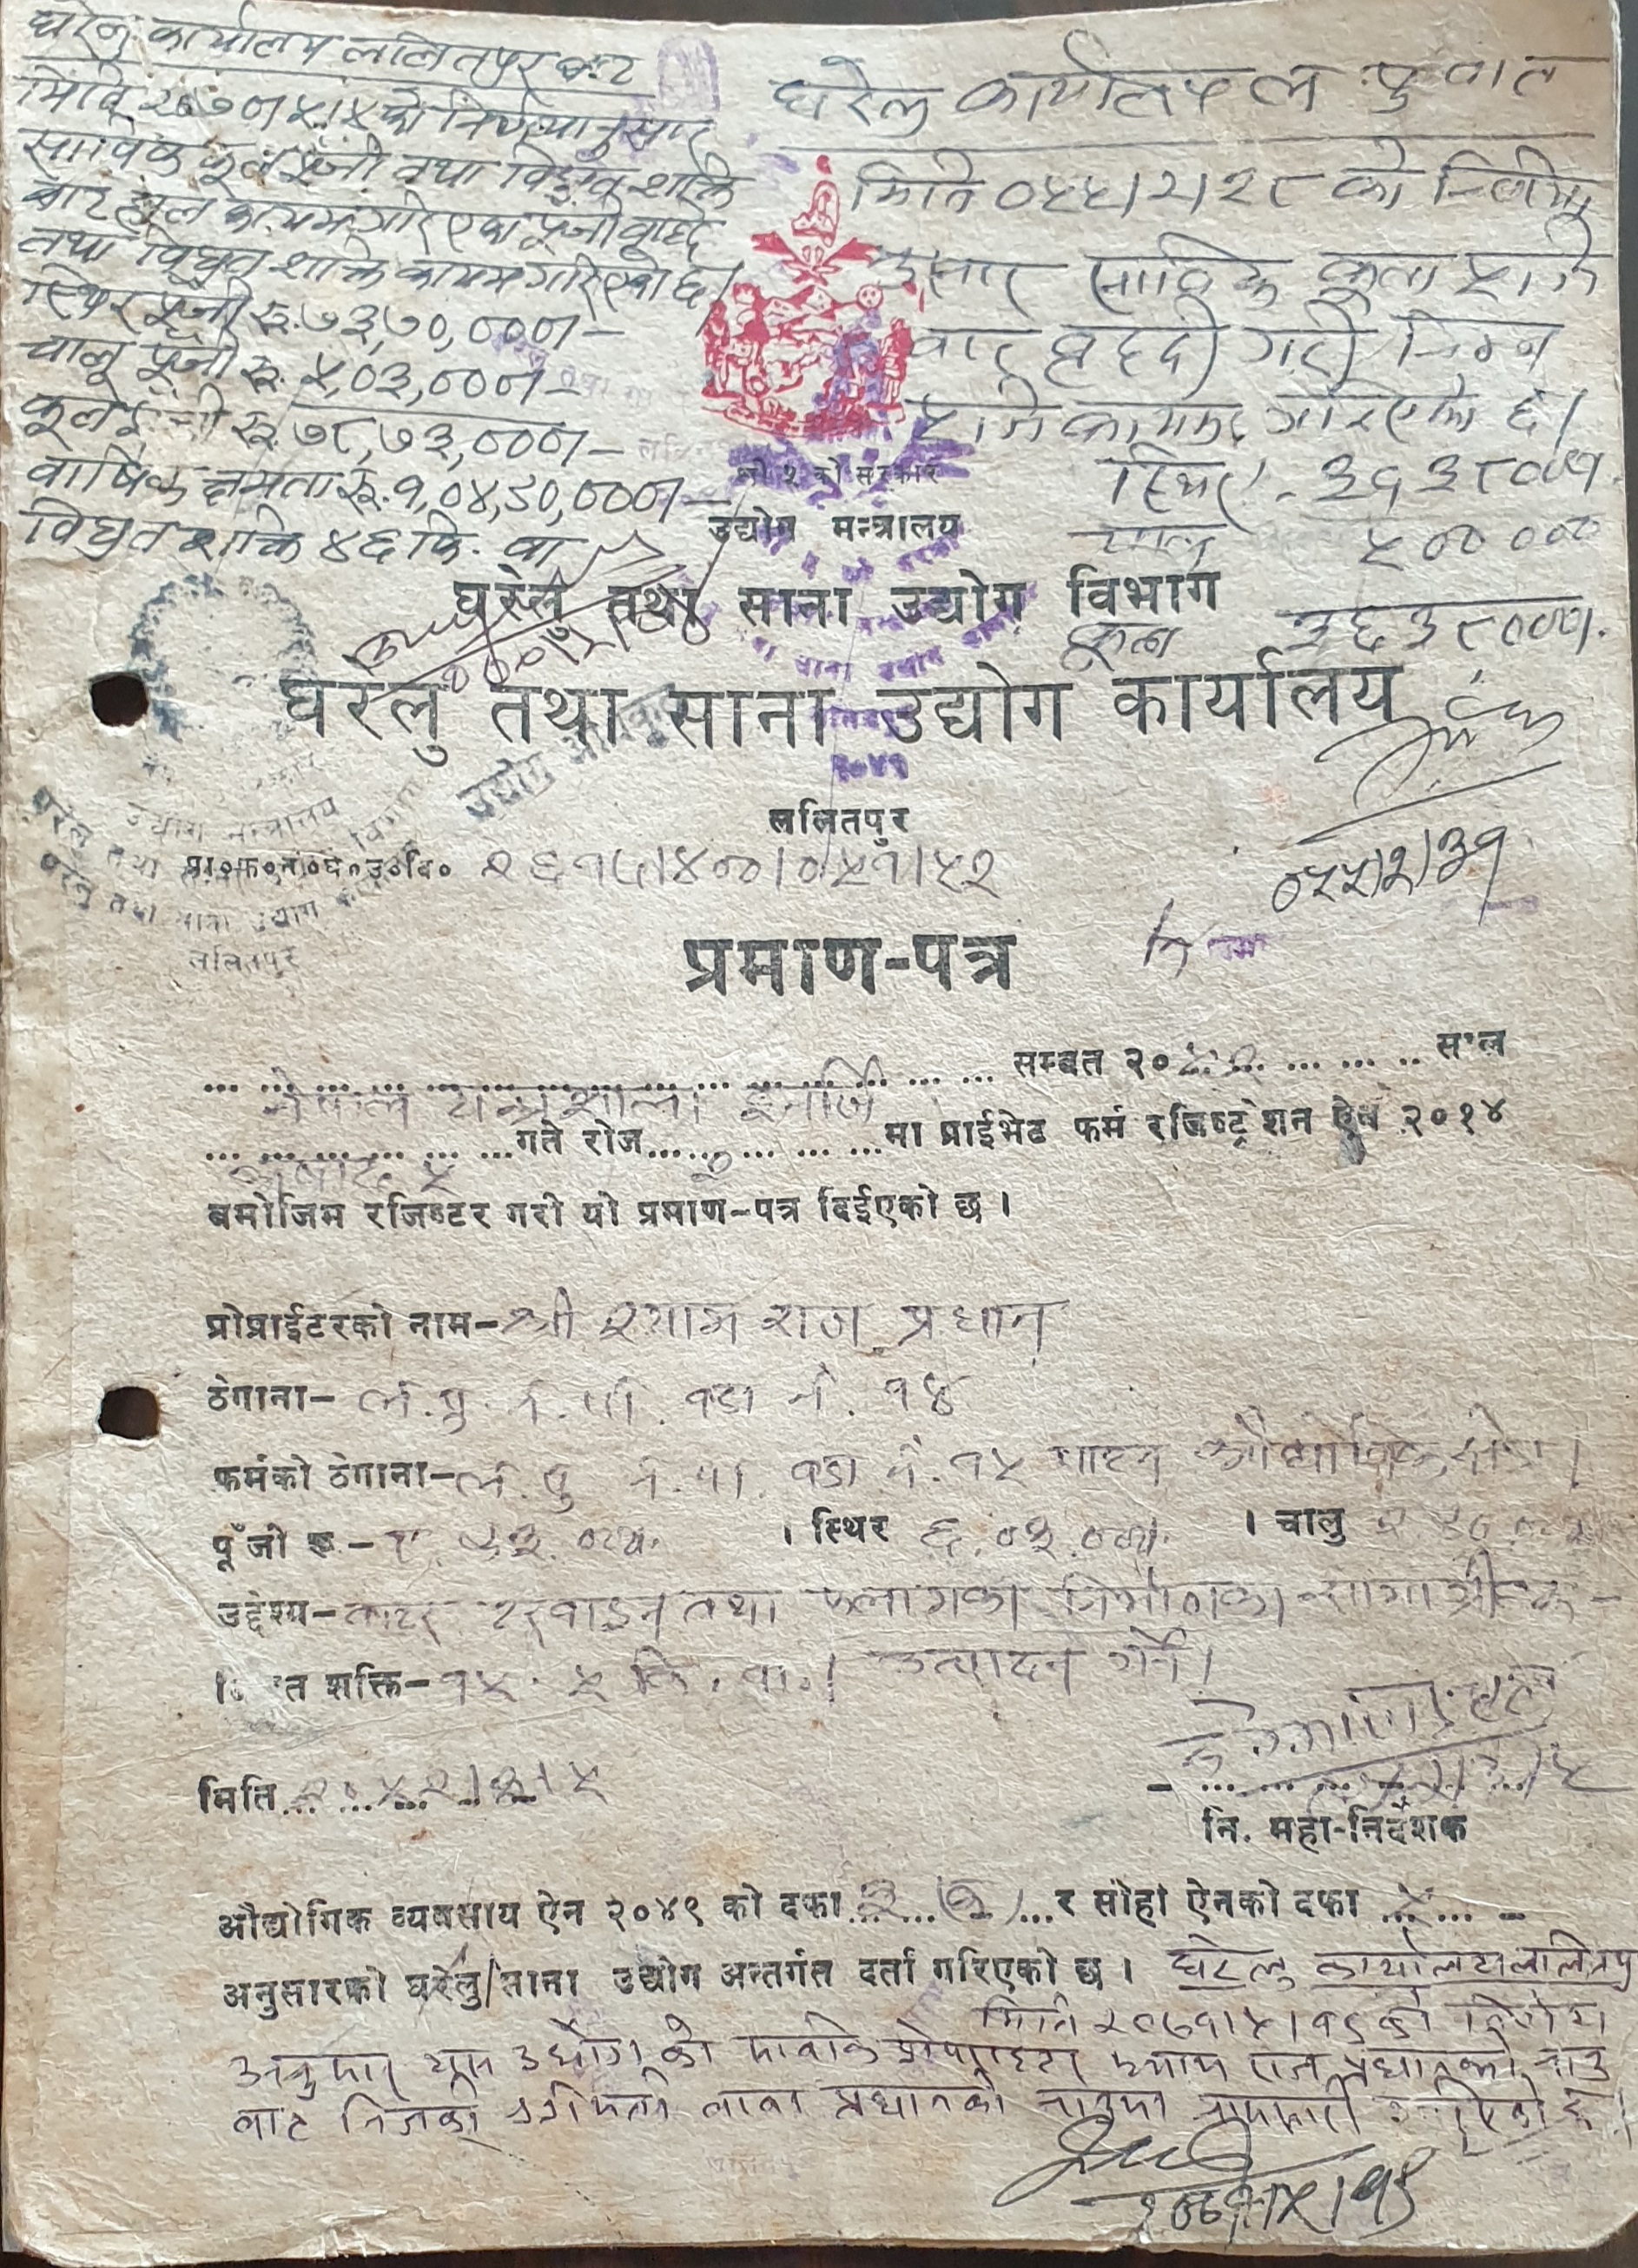 घरेलु कार्यालय ललितपुरबाट
मिति २०७०।५।४ को निर्णयानुसार
साविक कूल पूँजी तथा विद्युत शक्ति
बाट हाल कायम गरिएको पूँजी वृद्धि
तथा विद्युत शक्ति कायम गरिएको छ।
स्थिर पूँजी रू. ७३,७०,०००।-
चालू पूँजी रू. ५,०३,०००।-
कूल पूँजी रू. ७८,७३,०००।-
वार्षिक क्षमता रू. १,०४,५०,०००।-
विद्युत शक्ति ४६ कि. वा
घरेलु कार्यालय ल.पु बाट
मिति ०५५।२।२८ को निर्णया
नुसार साविक कूल पूंजि
बाट बृद्दी गरी निम्न
पूंजि कायम गरिएको छ।
स्थिर - ३१३८०००।
चालु ५०००००
कूल ३६३८०००।
०५५।२।३१
श्री ५ को सरकार
उद्योग मन्त्रालय
घरेलु तथा साना उद्योग विभाग
घरेलु तथा साना उद्योग कार्यालय
ललितपुर
प्रा०फ०नं०घ०उ०वि० २६१५।४००।०५१।५२
प्रमाण-पत्र
नेपाल यन्त्रशाला इनर्जि सम्बत २०५२ साल
आषाढ ५ गते रोज २ मा प्राईभेट फर्म रजिष्ट्रेशन ऐन २०१४
बमोजिम रजिष्टर गरी यो प्रमाण-पत्र दिईएको छ ।
प्रोप्राईटरको नाम- श्री श्याम राज प्रधान
ठेगाना- ल.पु. न.पा. वडा नं. १४
फर्मको ठेगाना- ल.पु न.पा. वडा नं. १५ पाटन औद्योगिक क्षेत्र।
पूँजी रू - ८,५३,०००। । स्थिर ६,०३,०००। । चालु २,५०,०००
उद्देश्य- वाटर टरवाइन तथा
उत्पादन गर्ने।
शक्ति- १५.५ कि. वा.।
मिति २०५२।३।५
नि. महा-निर्देशक
औद्योगिक व्यवसाय ऐन २०४९ को दफा ३ र सोही ऐनको दफा ५
अनुसारको घरेलु/साना उद्योग अन्तर्गत दर्ता गरिएको छ । घरेलु कार्यालय ललितपुर
मिति २०७१।५।१९ को निर्णय
अनुसार यस उद्योगको साविक प्रोपराइटर श्याम राज प्रधानको नाउ
बाट निजको प्रधानको नाउमा नामसारी गरिएको छ।